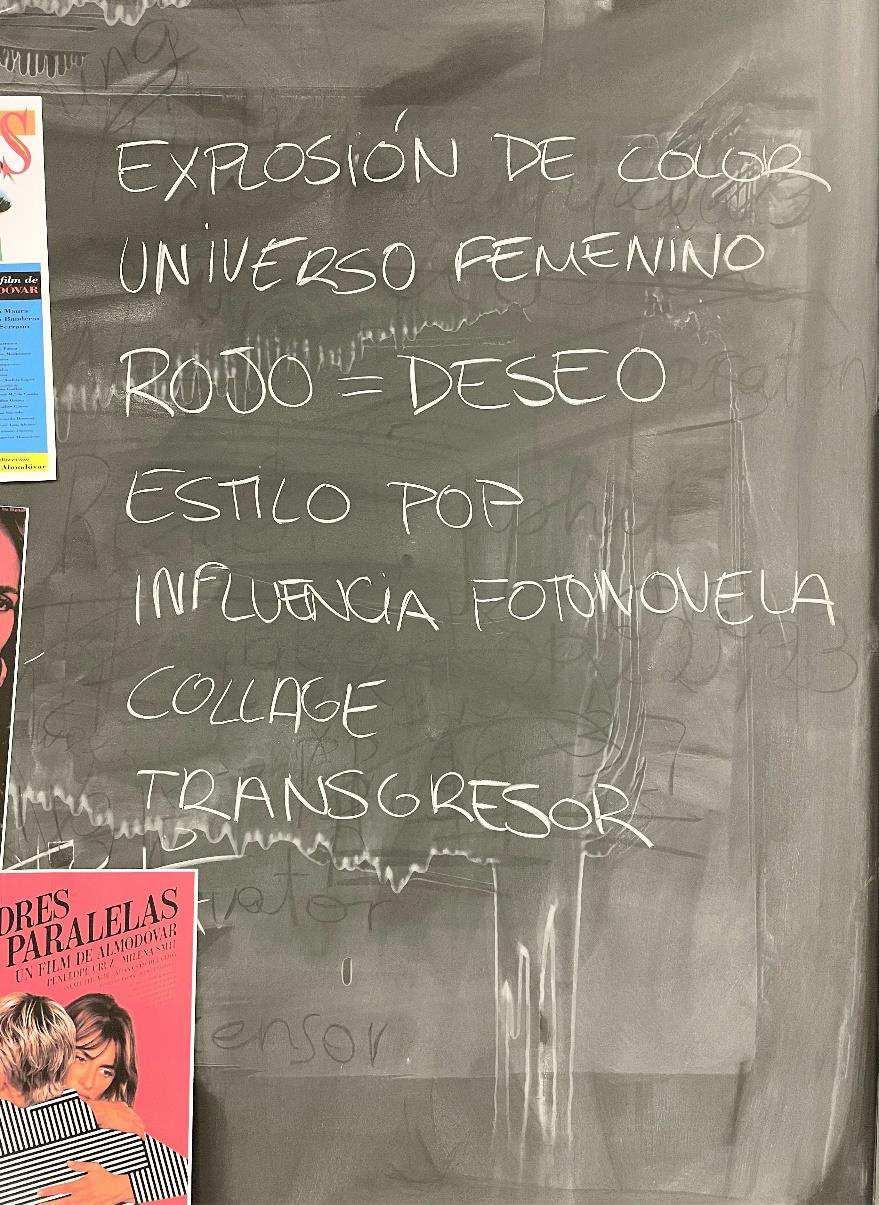 EXPLOSIÓN DE COLOR
UNIVERSO FEMENINO
ROJO = DESEO
ESTILO POP
INFLUENCIA FOTONOVELA
COLLAGE
TRANSGRESOR
film de
DOVAR
Maura
Banderas
Serrano
Almodóvar
DRES
PARALELAS
UN FILM DE ALMODÓVAR
PENÉLOPE CRUZ MILENA SMIT